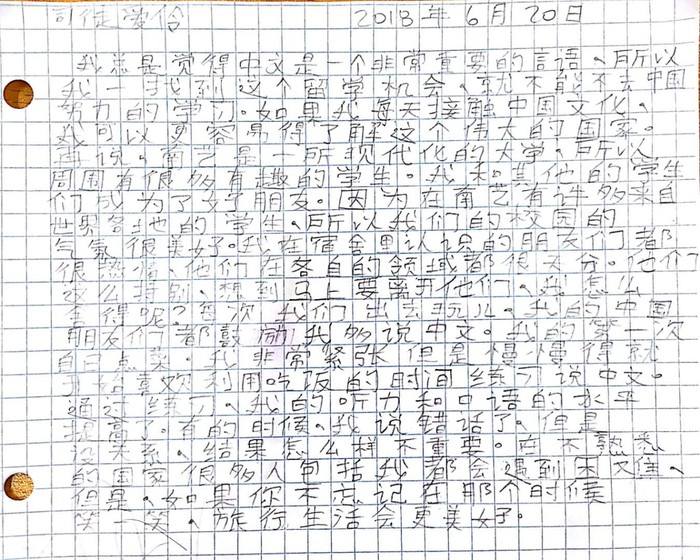 司徒爱伶 2018年6月20日
我总是觉得中文是一个非常重要的言语、所以
我一找到这个留学机会、就不能不去中国
努力的学习。如果我每天接触中国文化、
我可以更容易得了解这个伟大的国家。
再说、南艺是一所现代化的大学、所以人
周围有很多有趣的学生。我和其他的学生
们成为了好朋友。因为在南艺有许多来自
世界各地的学生、所以我们的校园的
气氛很美好。我在宿舍里认识的朋友们都
很热情、他们在各自的领域都很天分。他们
这么特别、想到马上要离开他们、我怎么
舍得呢？每次我们出去玩儿、我的中国
朋友们都鼓励我多说中文。我的第一次
自己点菜、我非常紧张但是慢慢得就
开始喜欢利用吃饭的时间练习说中文。
通过练习、我的听力和口语的水平
提高了。有的时候、我说错话了、但是
没关系、结果怎么样不重要。在不熟悉
的国家很多人包括我都会遇到困难、
但是、如果你不忘记在那个时候
笑一笑、旅行生活会更美好。